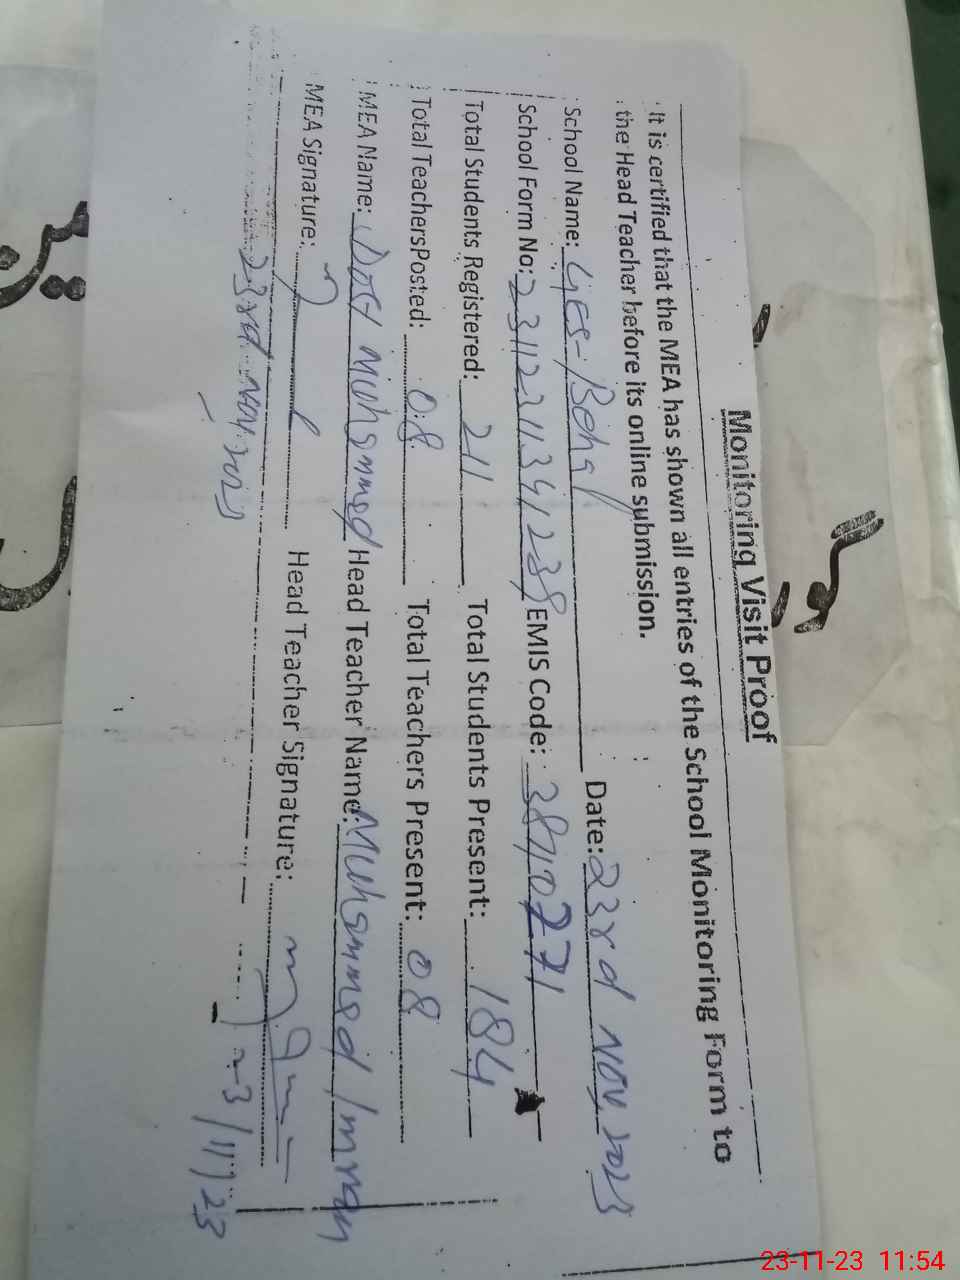 Monitoring Visit Proof
It is certified that the MEA has shown all entries of the School Monitoring Form to
the Head Teacher before its online submission.
School Name: GES-Behal Date: 23rd Nov, 2023
School Form No: 2311223113941238 EMIS Code: 38110771
Total Students Registered: 211 Total Students Present: 184
Total TeachersPosted: 08 Total Teachers Present: 08
MEA Name: Dost Muhammad Head Teacher Name: Muhammad Imran
MEA Signature: Head Teacher Signature:
23rd Nov, 2023
23/11/23
23-11-23 11:54